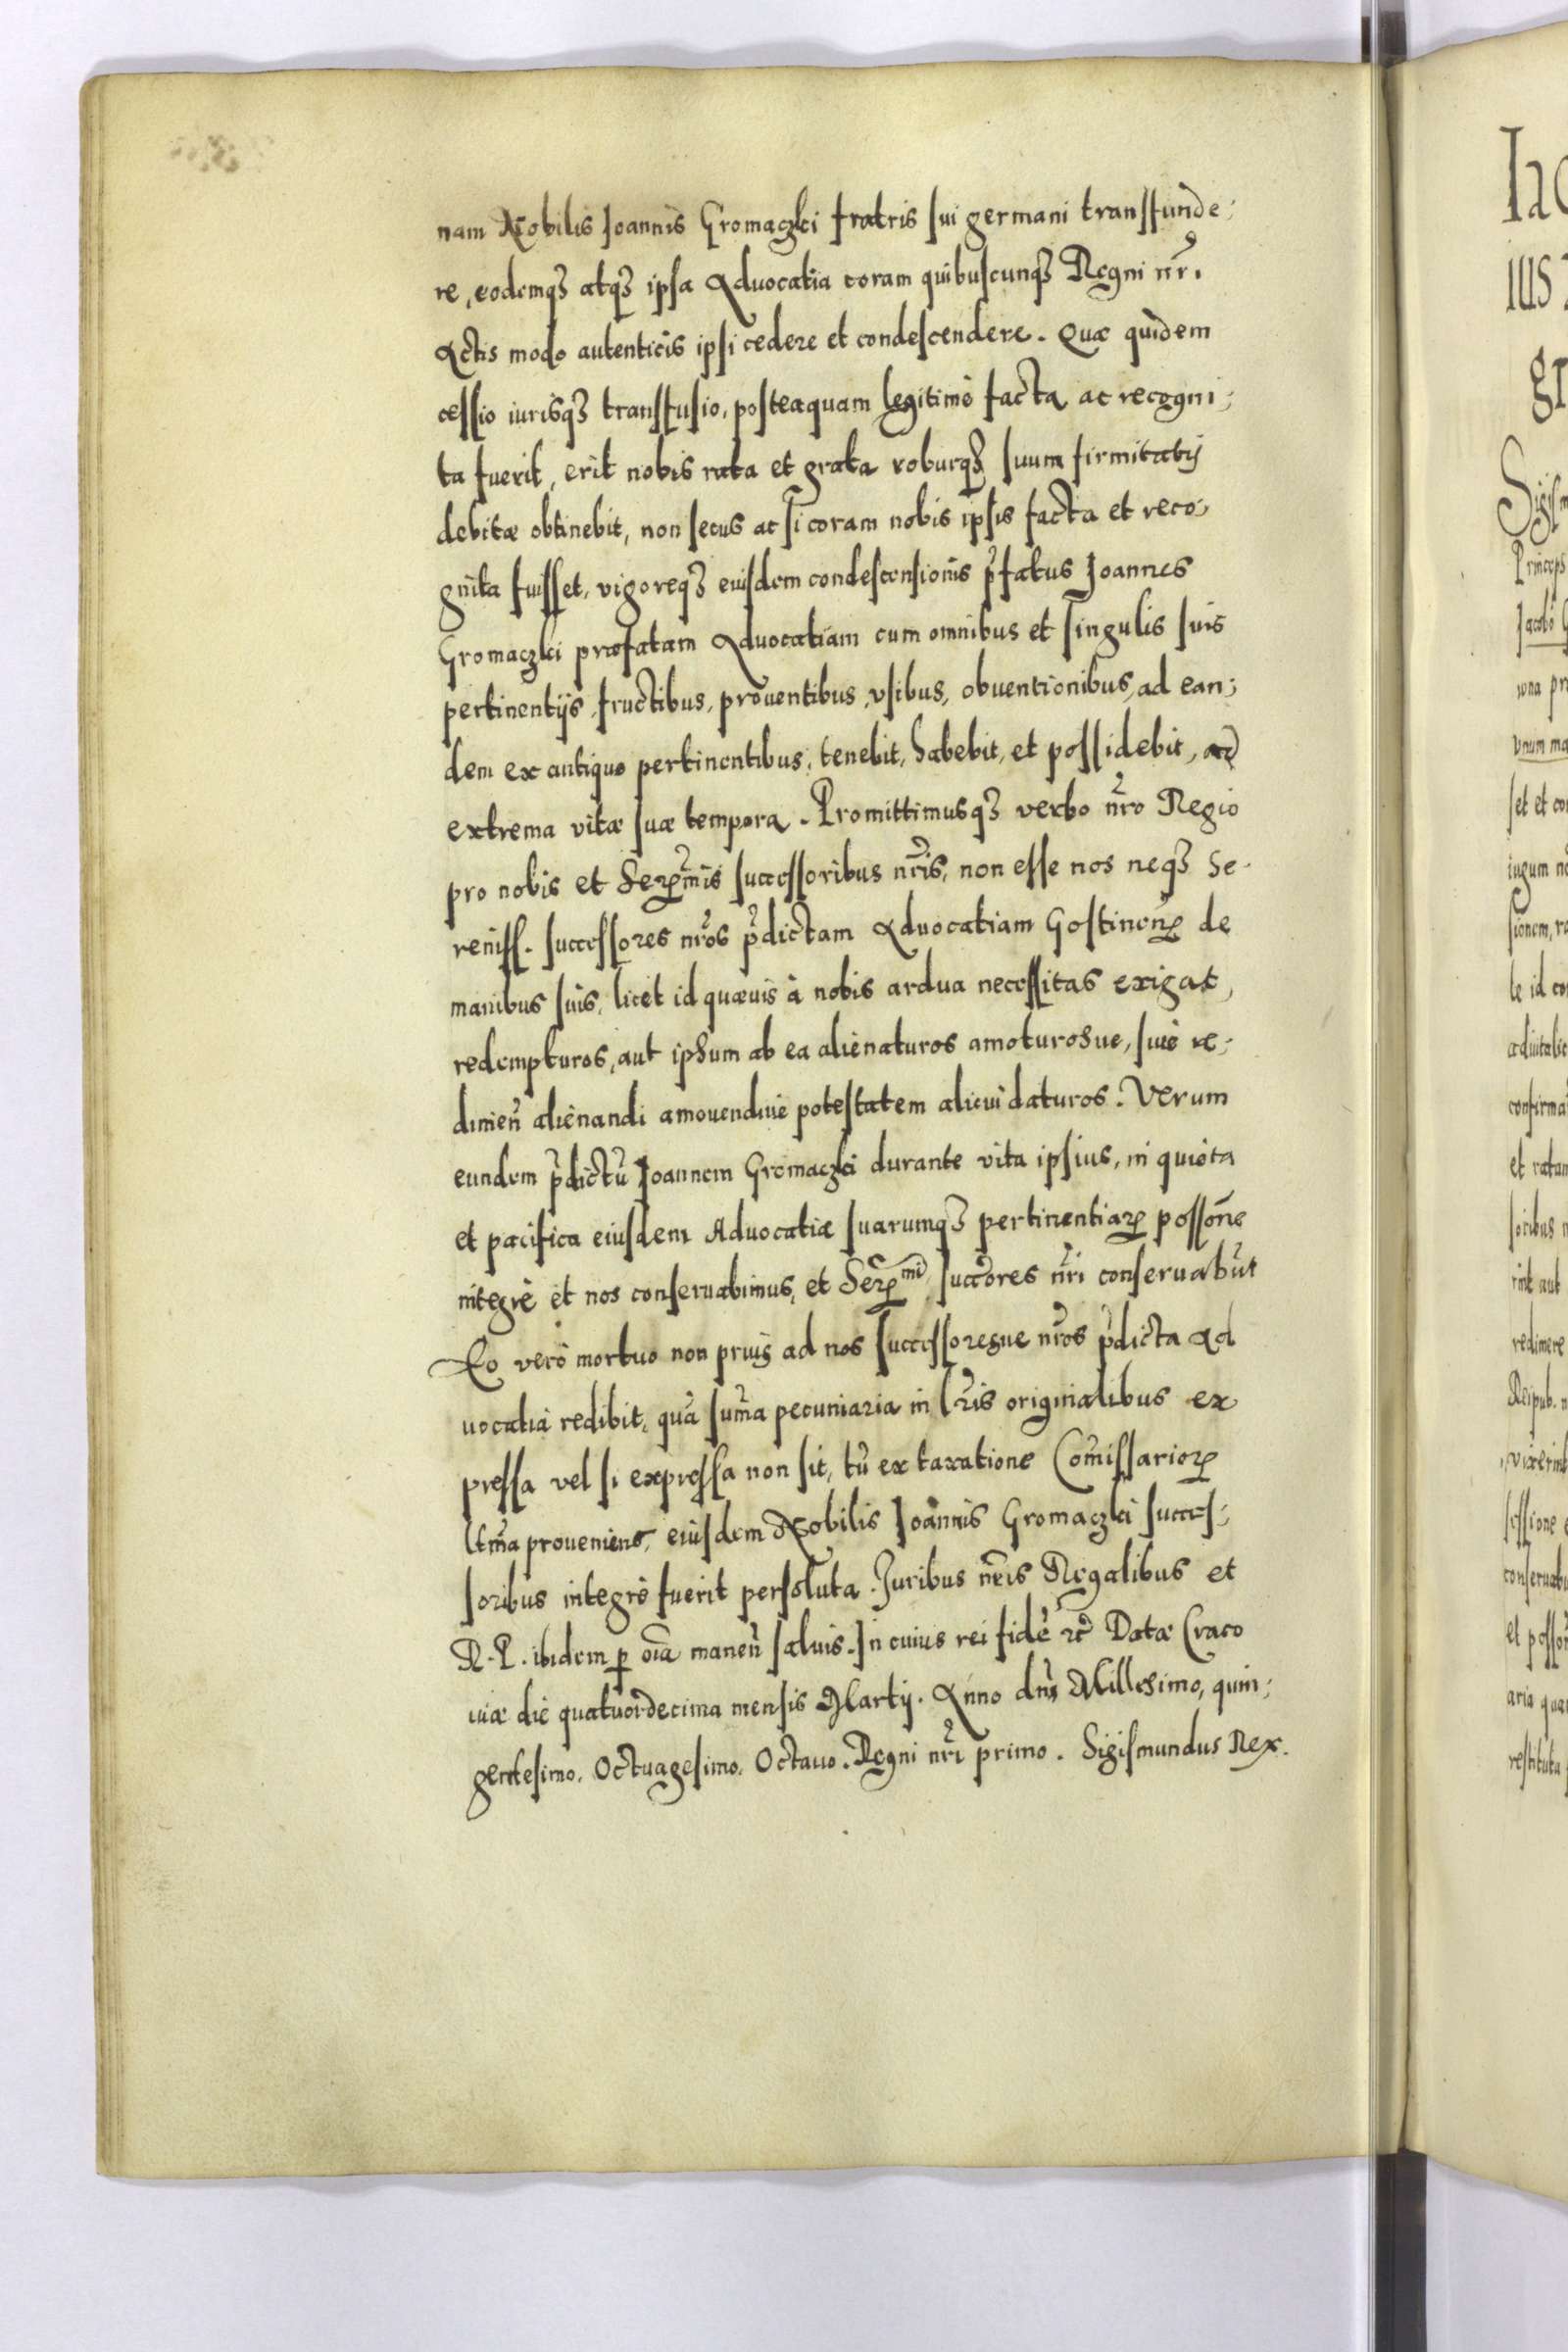 nam Nobilis Joannis Gromaczki fratris sui germani transfunde:
re, eodemq3 atq3 ipsa Aduocatia coram quibuscunq3 Regni nr̃i
Actis modo autenticis ipsi cedere et condescendere. Quæ quidem
cessio iurisq3 transfusio, posteaquam legitimè facta ac recogni:
ta fuerit, erit nobis rata et grata roburq3 suum firmitatis
debitæ obtinebit, non secus ac si coram nobis ipsis facta et reco:
gnita fuisset, vigoreq3 eiusdem condescensionis p̃fatus Joannes
Gromaczki præfatam Aduocatiam cum omnibus et singulis suis
pertinentijs, fructibus, prouentibus, vsibus, obuentionibus, ad ean:
dem ex antiquo pertinentibus, tenebit, habebit, et possidebit, ad
extrema vitæ suæ tempora. Promittimusq3 verbo nr̃o Regio
pro nobis et Serꝫmis successoribus nr̃is, non esse nos neq3 Se
reniss. successores nr̃os p̃dictam Aduocatiam Gostinenꝫ de
manibus suis, licet id quæuis à nobis ardua necessitas exigat,
redempturos, aut ipsum ab ea alienaturos amoturosue, siue re:
dimeñ alienandi amouendiue potestatem alicui daturos. Verum
eundem p̃dictũ Joannem Gromaczki durante vita ipsius, in quieta
et pacifica eiusdem Aduocatiæ suarumq3 pertinentiarꝫ possõne
integrè et nos conseruabimus, et Serꝫmi succõres nr̃i conseruabũt
Eo verò mortuo non prius ad nos successoresue nr̃os p̃dicta Ad
uocatia redibit, quã sum̃a pecuniaria in lr̃is originalibus ex
pressa vel si expressa non sit, tũ ex taxatione Com̃issariorꝫ
ltm̃a proueniens, eiusdem Nobilis Joannis Gromaczki succes:
soribus integrè fuerit persoluta. Juribus nr̃is Regalibus et
R. P. ibidem ꝑ oĩa maneñ saluis. In cuius rei fidẽ ꝛc̃ Datæ Craco
uiæ die quatuordecima mensis Martij. Anno dnĩ Millesimo, quin:
gentesimo, Octuagesimo, Octauo. Regni nr̃i primo. Sigismundus Rex.